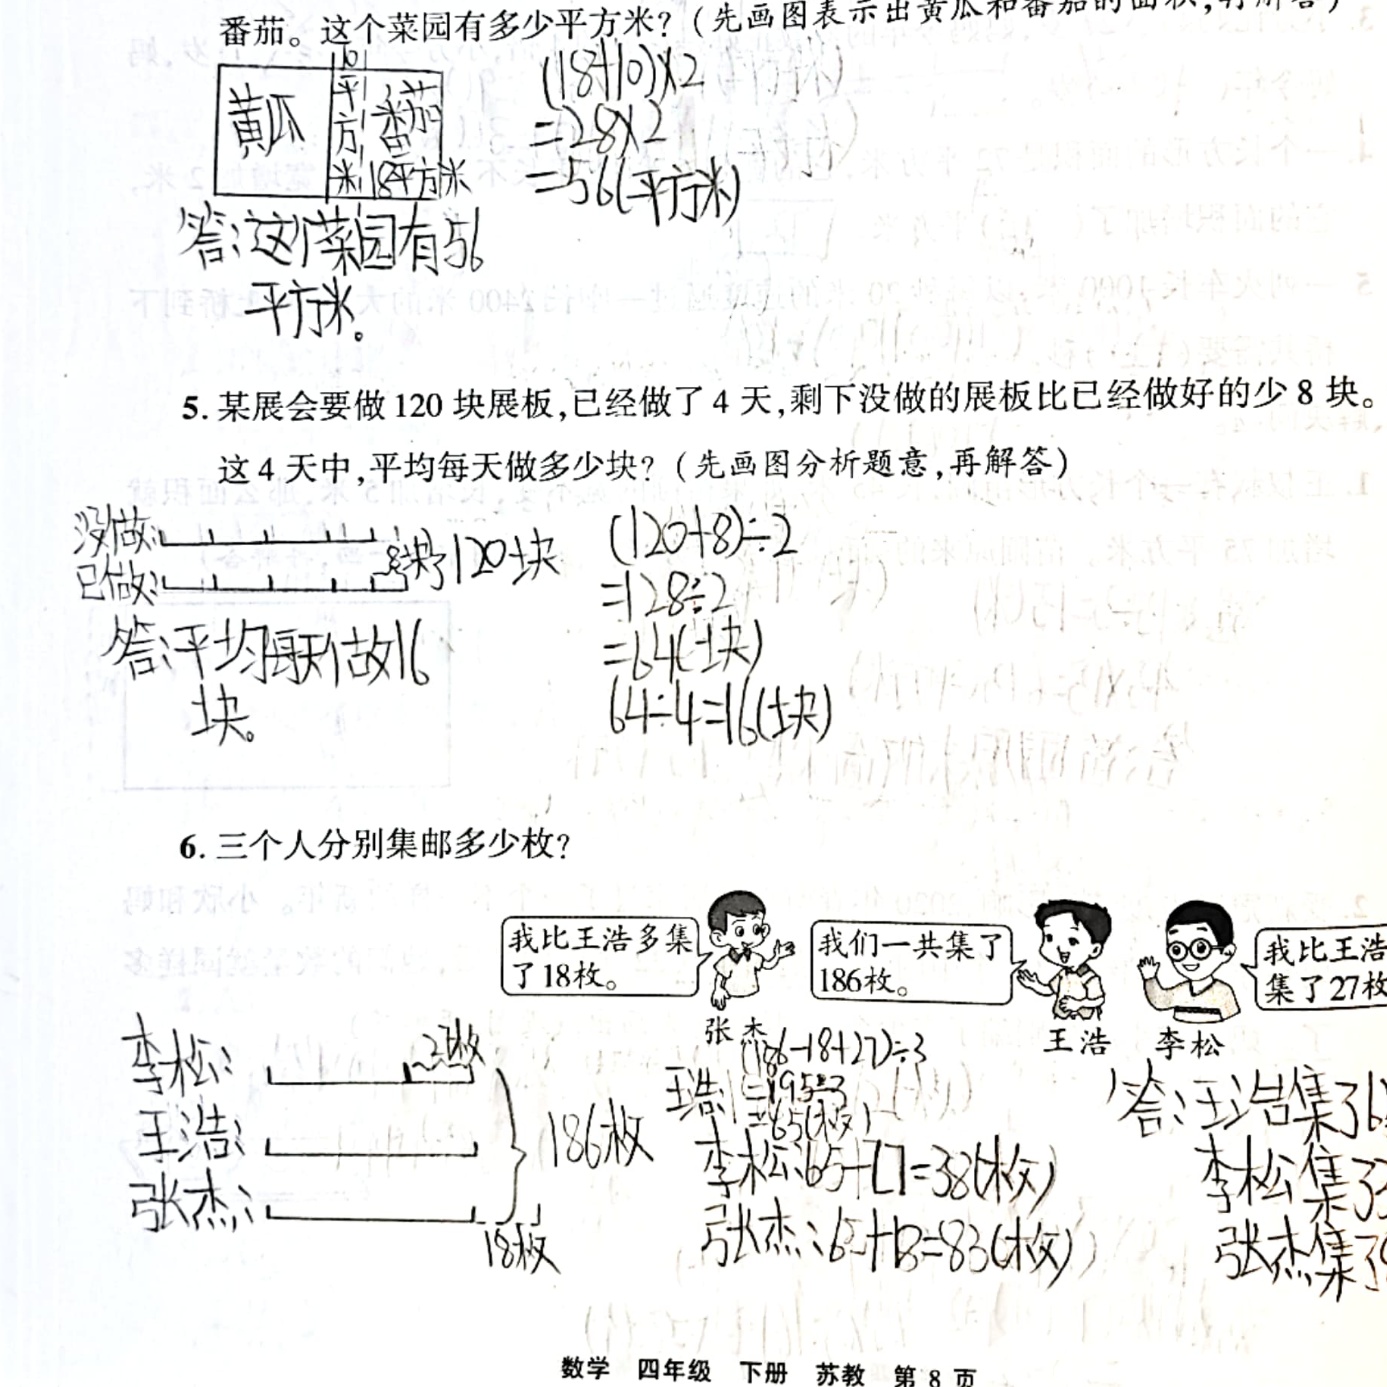 番茄。这个菜园有多少平方米?(先画图表示出黄瓜和番茄的面积,再解答)
黄瓜
10平方米
番茄
18平方米
(18+10)×2
=28×2
=56(平方米)
答:这个菜园有56
平方米。
5. 某展会要做120块展板,已经做了4天,剩下没做的展板比已经做好的少8块。
这4天中,平均每天做多少块?(先画图分析题意,再解答)
没做:
已做:
8块
120块
(120+8)÷2
=128÷2
=64(块)
64÷4=16(块)
答:平均每天做16
块。
6. 三个人分别集邮多少枚?
我比王浩多集
了18枚。
张杰
我们一共集了
186枚。
王浩
李松
我比王浩
集了27枚
李松:
王浩:
张杰:
186枚
18枚
(186-18+27)÷3
王浩:=195÷3
=65(枚)
李松:65-27=38(枚)
张杰:65+18=83(枚)
答:王浩集了6
李松集了3
张杰集了
数学 四年级 下册 苏教 第8页